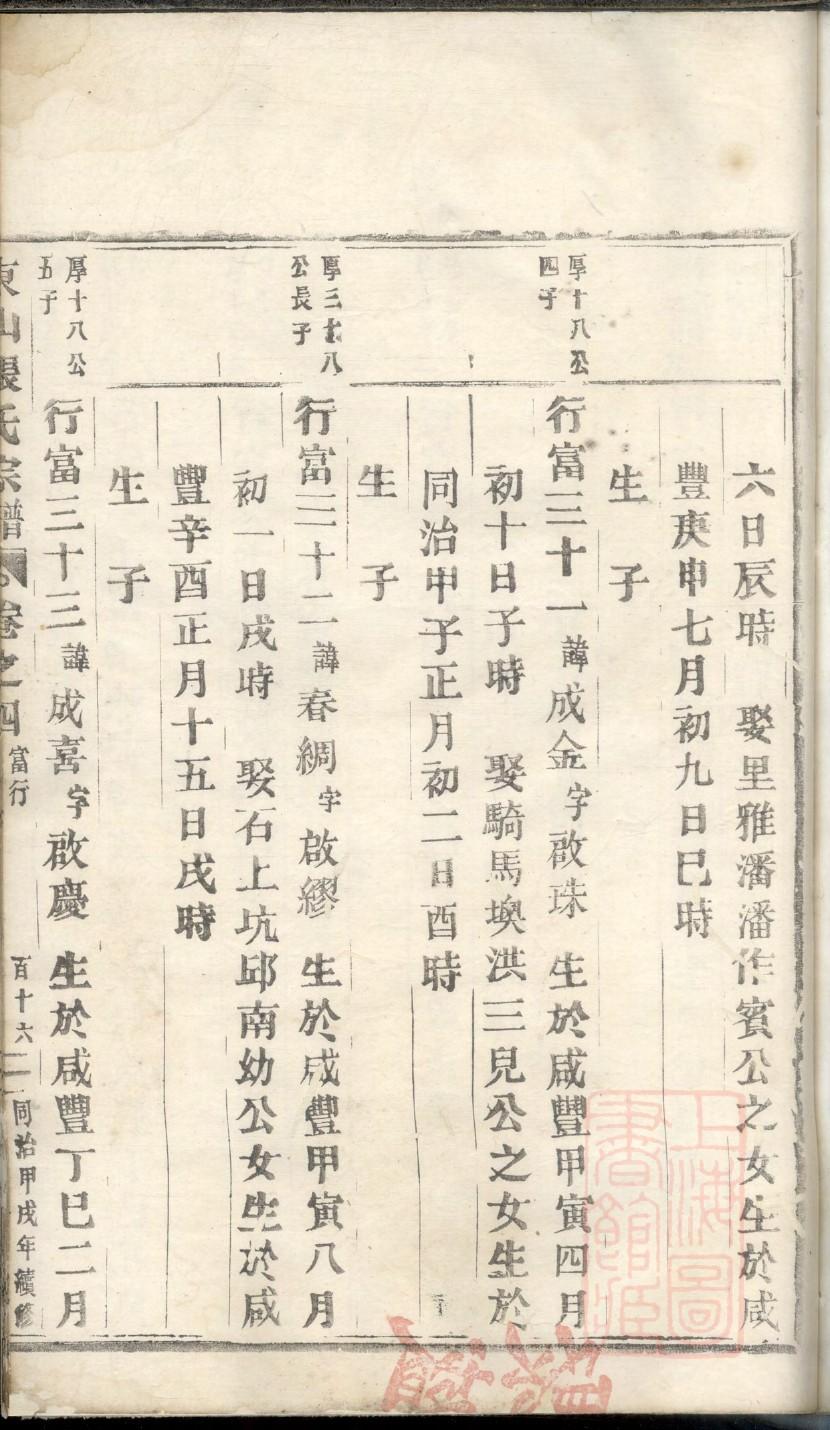 六日辰時 娶里雅潘潘作賓公之女生於咸
豐庚申七月初九日巳時
生 子
厚十八公
四子
行富三十一諱成金字啟珠 生於咸豐甲寅四月
初十日子時 娶騎馬墺洪三兒公之女生於
同治甲子正月初二日酉時
生 子
厚三十八
公長子
行富三十二諱春綢字啟繆 生於咸豐甲寅八月
初一日戌時 娶石上坑邱南幼公女生於咸
豐辛酉正月十五日戌時
生 子
厚十八公
五子
行富三十三諱成喜字啟慶 生於咸豐丁巳二月
東山張氏宗譜 卷之四 富行 百十六 同治甲戌年續修
上海圖
書館